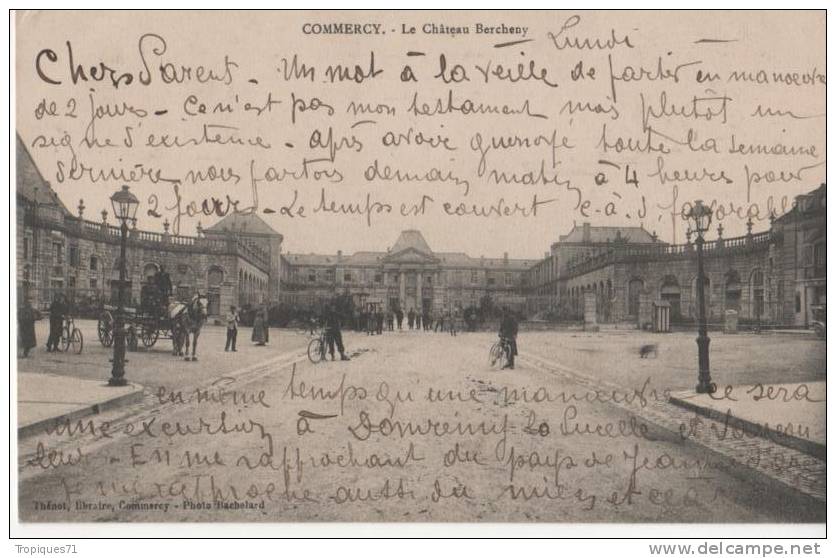 COMMERCY. - Le Château Bercheny
Lundi
Chers Parents - Un mot à la veille de partir en manoeuvre
de 2 jours - Ce n'est pas mon testament mais plutôt un
signe d'existence - après avoir toute la semaine
dernière nous partons demain matin à 4 heures pour
2 jours - Le temps est couvert c-à-d favorable
en même temps qu'une manoeuvre ce sera
une excursion à Domremy la Pucelle et Vaucou
leur - En me rapprochant du pays de Jeanne d'Arc
je me rapproche aussi du mien et ce
Thénot, libraire, Commercy - Photo Bachelard
Tropiques71
http://www.delcampe.net